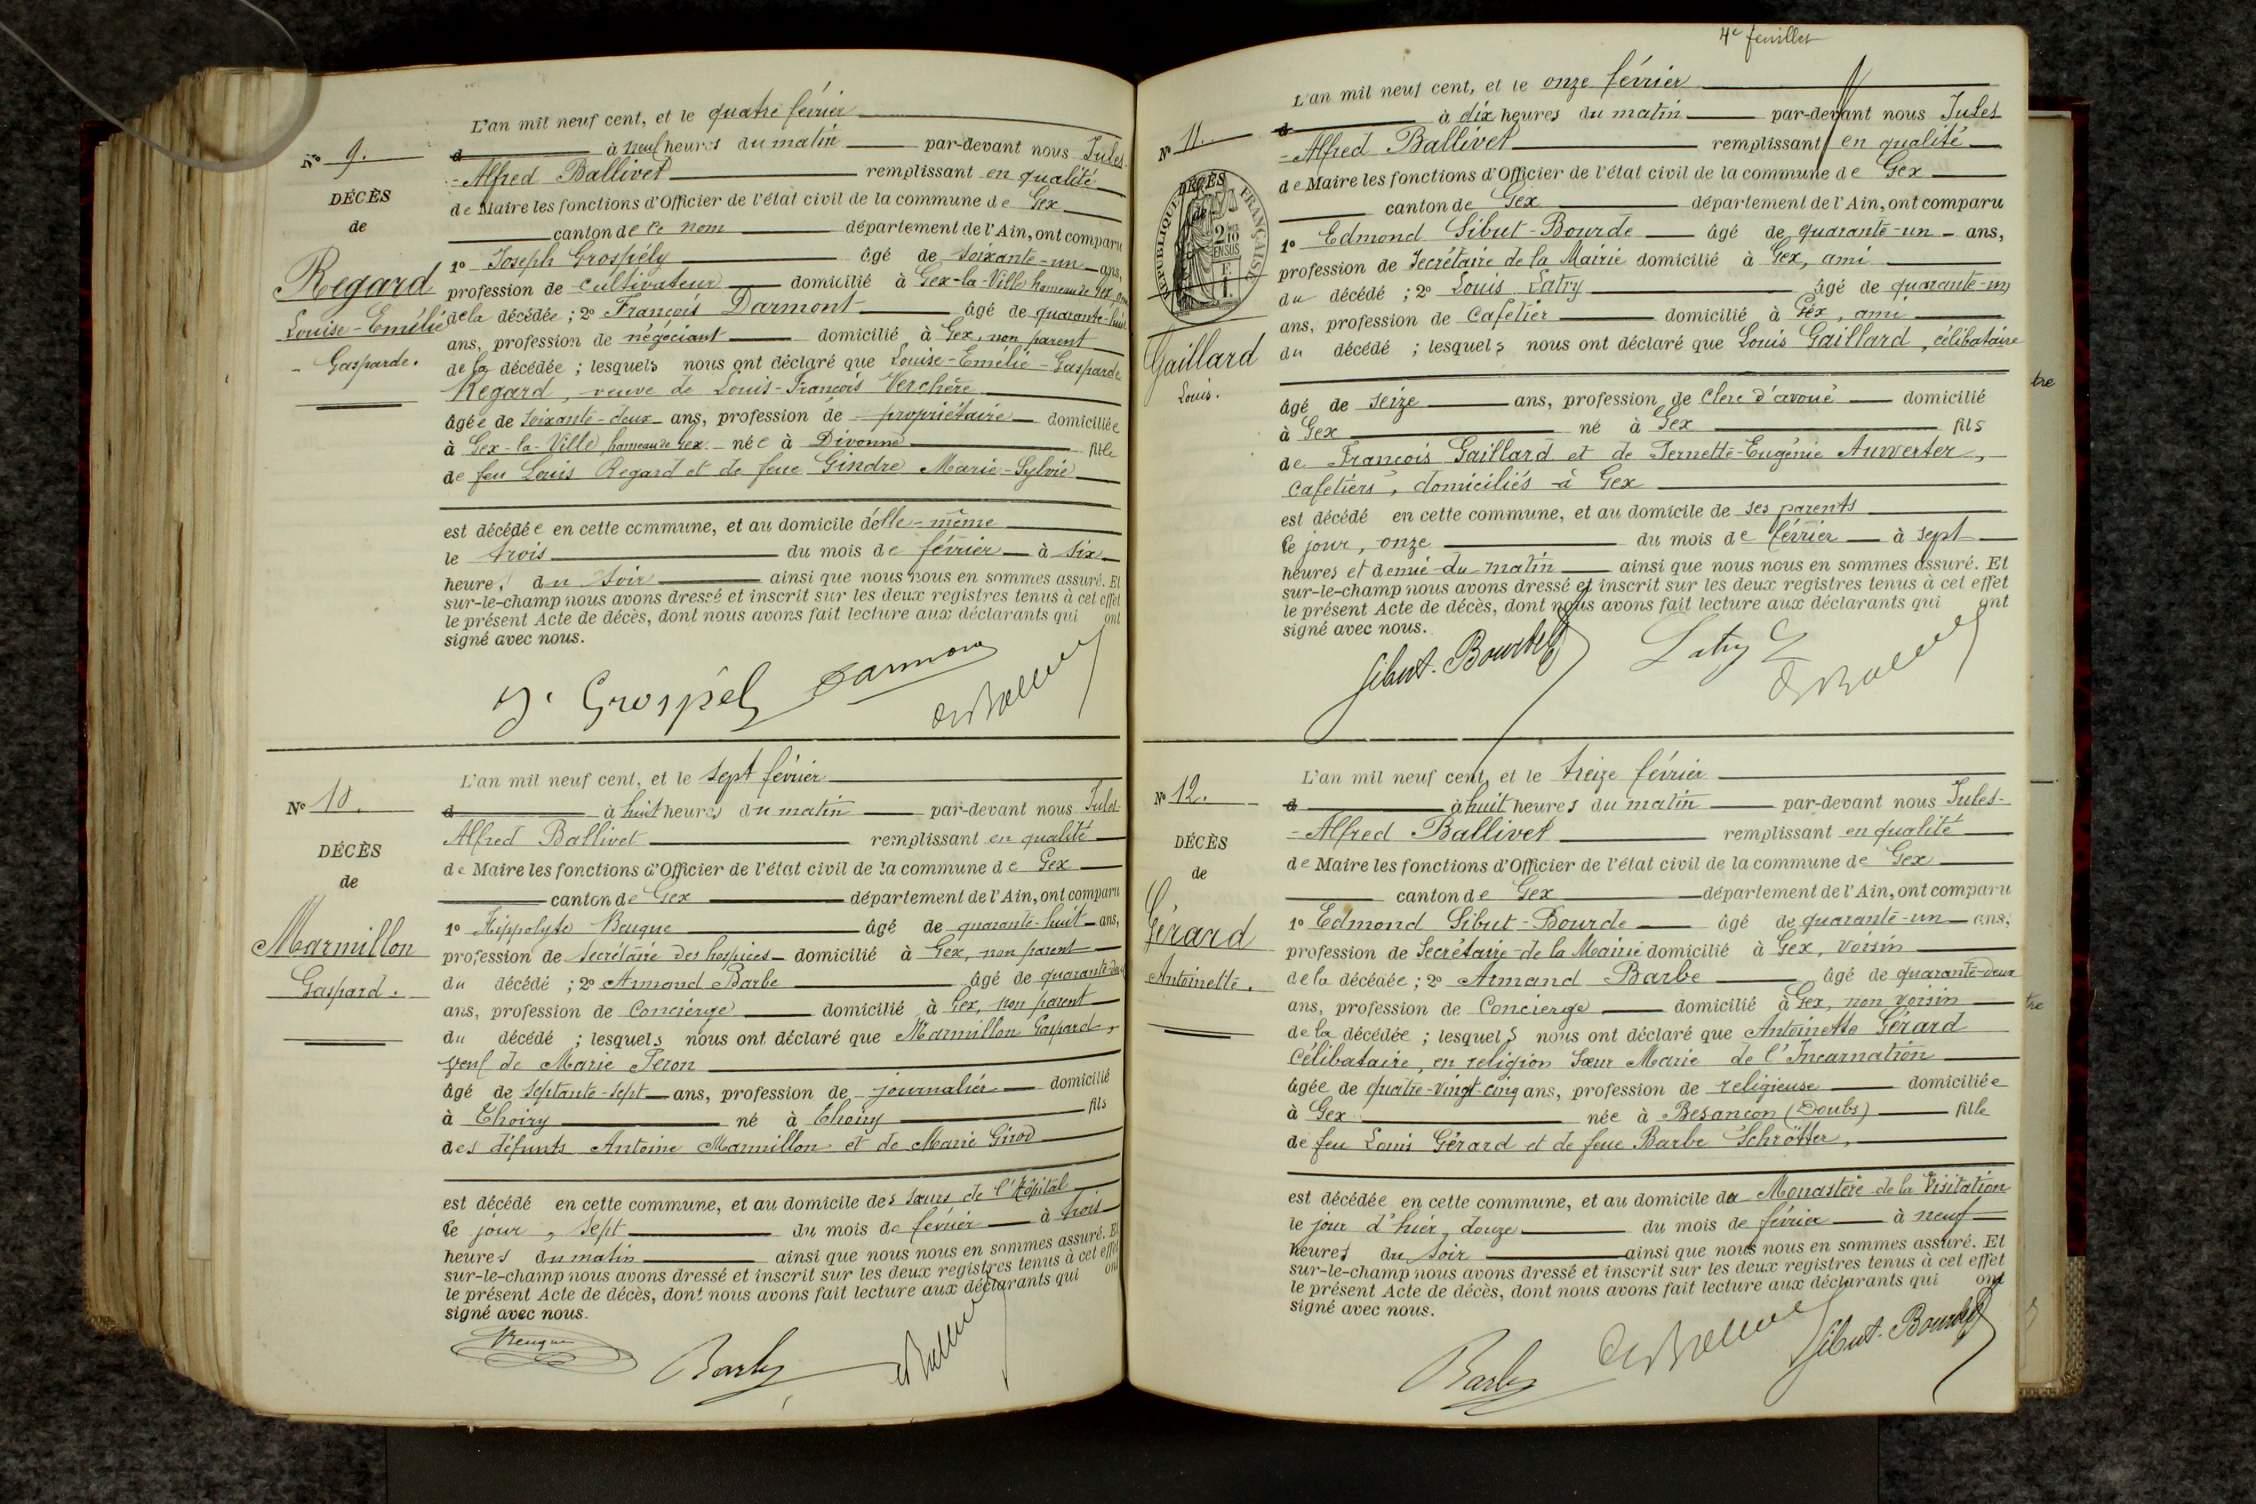 L'an mil neuf cent, et le quatre février
N° 9.
d à neuf heures du matin par-devant nous Jules-
-Alfred Ballivet remplissant en qualité
DÉCÈS
de Maire les fonctions d'Officier de l'état civil de la commune de Gex
de
canton de ce nom département de l'Ain, ont comparu
1° Joseph Grospély âgé de soixante-un ans,
Regard
profession de cultivateur domicilié à Gex-la-Ville hameau de Gex, ami
Louise-Emélie
de la décédée ; 2° François Darmont âgé de quarante-huit
ans, profession de négociant domicilié à Gex, non parent
- Gasparde.
de la décédée ; lesquels nous ont déclaré que Louise-Emélie-Gasparde
Regard, veuve de Louis-François Verchère
âgée de soixante-deux ans, profession de propriétaire domiciliée
à Gex-la-Ville, hameau de Gex née à Divonne fille
de feu Louis Regard et de feue Gindre Marie-Sylvie
est décédée en cette commune, et au domicile d'elle-même
le trois du mois de février à six
heures du soir ainsi que nous nous en sommes assuré. Et
sur-le-champ nous avons dressé et inscrit sur les deux registres tenus à cet effet
le présent Acte de décès, dont nous avons fait lecture aux déclarants qui ont
signé avec nous.
J. Grospély Darmont
L'an mil neuf cent, et le sept février
N° 10.
d à huit heures du matin par-devant nous Jules-
Alfred Ballivet remplissant en qualité
DÉCÈS
de Maire les fonctions d'Officier de l'état civil de la commune de Gex
de
canton de Gex département de l'Ain, ont comparu
1° Hippolyte Beugue âgé de quarante-huit ans,
Marmillon
profession de secrétaire des hospices domicilié à Gex, non parent
Gaspard.
du décédé ; 2° Armand Barbe âgé de quarante-deux
ans, profession de Concierge domicilié à Gex, non parent
du décédé ; lesquels nous ont déclaré que Marmillon Gaspard,
veuf de Marie Feron
âgé de septante-sept ans, profession de journalier domicilié
à Thoiry né à Thoiry fils
des défunts Antoine Marmillon et de Marie Girod
est décédé en cette commune, et au domicile des sœurs de l'Hôpital
ce jour, sept du mois de février à trois
heures du matin ainsi que nous nous en sommes assuré. Et
sur-le-champ nous avons dressé et inscrit sur les deux registres tenus à cet effet
le présent Acte de décès, dont nous avons fait lecture aux déclarants qui ont
signé avec nous.
Beugue Barbe
4e feuillet
L'an mil neuf cent, et le onze février
N° 11.
d à dix heures du matin par-devant nous Jules
-Alfred Ballivet remplissant en qualité
DÉCÈS
de Maire les fonctions d'Officier de l'état civil de la commune de Gex
de
RÉPUBLIQUE FRANÇAISE
2/10 EN SUS
1 F.
canton de Gex département de l'Ain, ont comparu
1° Edmond Sibut-Bourde âgé de quarante-un ans,
profession de Secrétaire de la Mairie domicilié à Gex, ami
du décédé ; 2° Louis Latry âgé de quarante-un
ans, profession de Cafetier domicilié à Gex, ami
Gaillard
du décédé ; lesquels nous ont déclaré que Louis Gaillard, célibataire
Louis.
âgé de seize ans, profession de clerc d'avoué domicilié
à Gex né à Gex fils
de François Gaillard et de Pernette-Eugénie Auwerter,
cafetiers, domiciliés à Gex
est décédé en cette commune, et au domicile de ses parents
ce jour, onze du mois de février à sept
heures et demie du matin ainsi que nous nous en sommes assuré. Et
sur-le-champ nous avons dressé et inscrit sur les deux registres tenus à cet effet
le présent Acte de décès, dont nous avons fait lecture aux déclarants qui ont
signé avec nous.
Sibut-Bourde Latry
L'an mil neuf cent, et le treize février
N° 12.
d à huit heures du matin par-devant nous Jules-
-Alfred Ballivet remplissant en qualité
DÉCÈS
de Maire les fonctions d'Officier de l'état civil de la commune de Gex
de
canton de Gex département de l'Ain, ont comparu
1° Edmond Sibut-Bourde âgé de quarante-un ans,
Gérard
profession de Secrétaire de la Mairie domicilié à Gex, voisin
Antoinette.
de la décédée ; 2° Armand Barbe âgé de quarante-deux
ans, profession de Concierge domicilié à Gex, non voisin
de la décédée ; lesquels nous ont déclaré que Antoinette Gérard
célibataire, en religion Sœur Marie de l'Incarnation
âgée de quatre-vingt-cinq ans, profession de religieuse domiciliée
à Gex née à Besançon (Doubs) fille
de feu Louis Gérard et de feue Barbe Schrötter,
est décédée en cette commune, et au domicile du Monastère de la Visitation
le jour d'hier, douze du mois de février à neuf
heures du soir ainsi que nous nous en sommes assuré. Et
sur-le-champ nous avons dressé et inscrit sur les deux registres tenus à cet effet
le présent Acte de décès, dont nous avons fait lecture aux déclarants qui ont
signé avec nous.
Barbe Sibut-Bourde
tre
tre